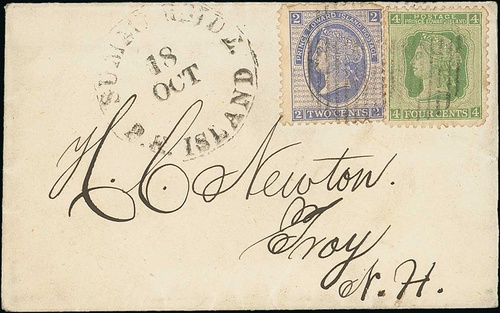 SUMMERSIDE.
18
OCT
P.E. ISLAND
PRINCE EDWARD ISLAND
2 2
2 TWO CENTS 2
4 POSTAGE 4
PRINCE EDWARD ISLAND
4 FOUR CENTS 4
H. C. Newton.
Troy
N. H.